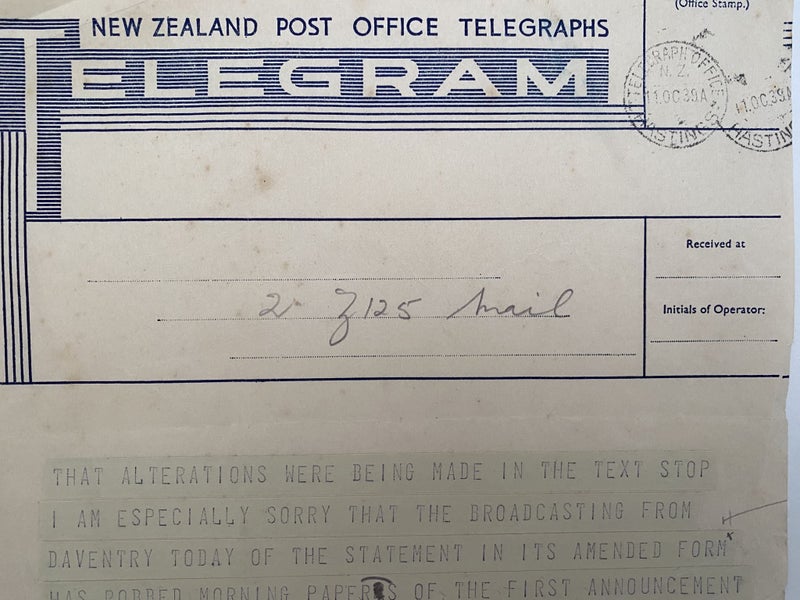 (Office Stamp.)
NEW ZEALAND POST OFFICE TELEGRAPHS
TELEGRAM
TELEGRAPH OFFICE
N.Z.
11.OC39A
HASTINGS
11.OC39A
HASTIN
Received at
2 Z125 Mail
Initials of Operator:
THAT ALTERATIONS WERE BEING MADE IN THE TEXT STOP
I AM ESPECIALLY SORRY THAT THE BROADCASTING FROM
DAVENTRY TODAY OF THE STATEMENT IN ITS AMENDED FORM
HAS ROBBED MORNING PAPERS OF THE FIRST ANNOUNCEMENT